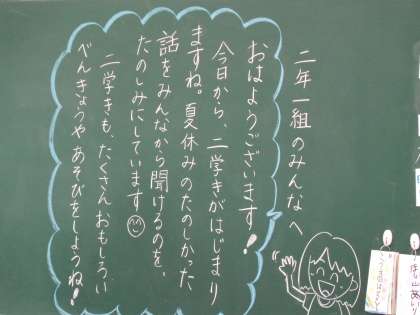 二年一組のみんなへ
おはようございます!
今日から、二学きがはじまり
ますね。夏休みのたのしかった
話をみんなから聞けるのを、
たのしみにしています☺
二学きも、たくさんおもしろい
べんきょうやあそびをしようね!